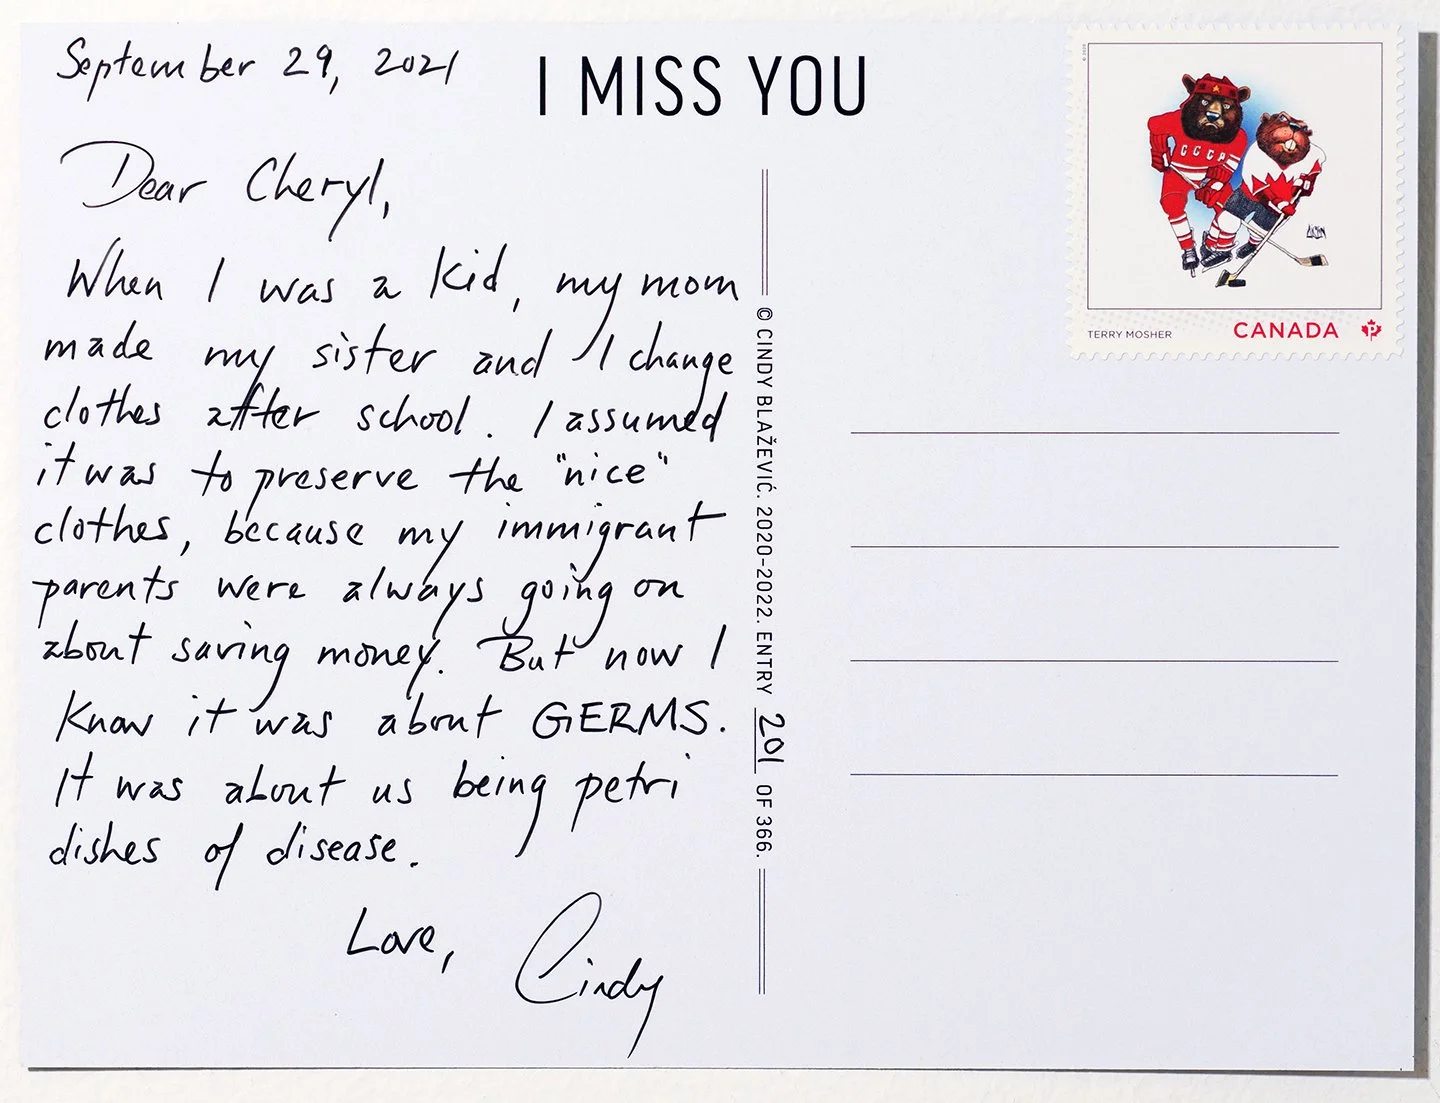 September 29, 2021
I MISS YOU
Dear Cheryl,
When I was a kid, my mom
made my sister and I change
clothes after school. I assumed
it was to preserve the "nice"
clothes, because my immigrant
parents were always going on
about saving money. But now I
know it was about GERMS.
It was about us being petri
dishes of disease.
Love,
Cindy
© CINDY BLAŽEVIĆ. 2020-2022. ENTRY 201 OF 366.
CCCP
TERRY MOSHER
CANADA
P